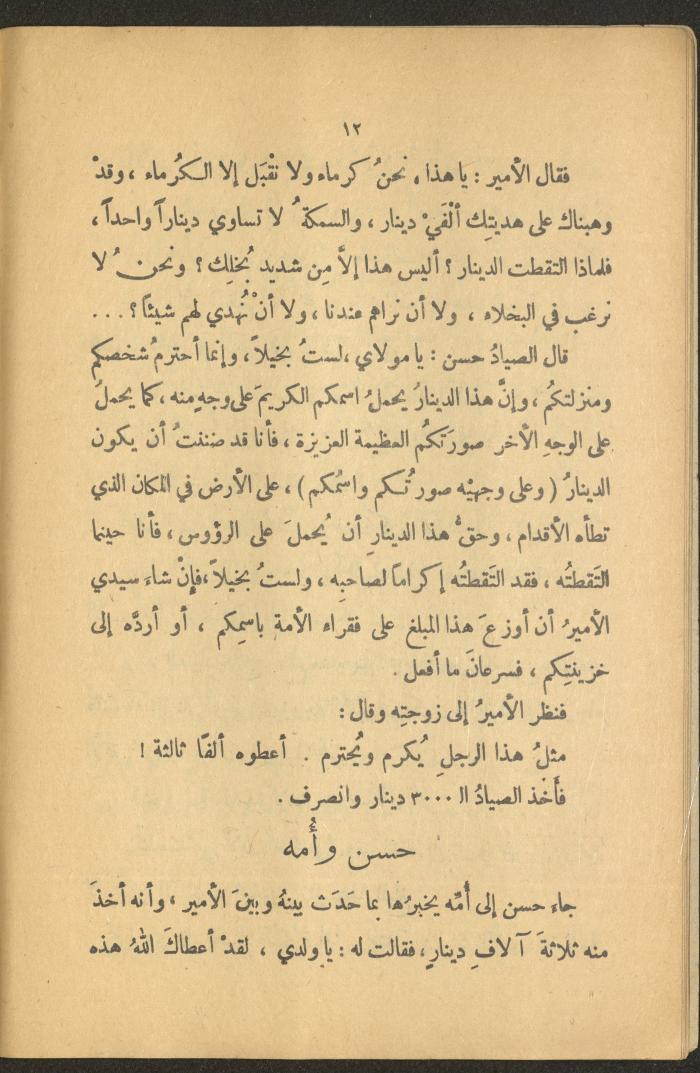 ١٢
فقال الأمير : يا هذا ، نحنُ كرماء ولا نقْبَل إلا الكُرماء ، وقدْ
وهبناك على هديتِك ألْفَيْ دينار ، والسمكةُ لا تساوي ديناراً واحداً ،
فلماذا التقطت الدينار ؟ أليس هذا إلاَّ مِن شديد بُخلِك ؟ ونحنُ لا
نرغب في البخلاء ، ولا أن نراهم عندنا ، ولا أنْ نُهدي لهم شيئاً ؟ ...
قال الصيادُ حسن : يا مولاي ، لستُ بخيلاً ، وإنما أحترمُ شخصكم
ومنزلتكُم ، وإنَّ هذا الدينارُ يحملُ اسمكم الكريمَ على وجهٍ منه ، كما يحملُ
على الوجهِ الآخر صورَتكُم العظيمة العزيزة ، فأنا قد ضننتُ أن يكون
الدينارُ ( وعلى وجهيْه صورتُكم واسمُكم ) ، على الأرض في المكان الذي
تطأه الأقدام ، وحقُّ هذا الدينارِ أن يُحملَ على الرؤوس ، فأنا حينما
التَقطتُه ، فقد التَقطتُه إكراماً لصاحبِه ، ولستُ بخيلاً ، فإنْ شاء سيدي
الأميرُ أن أوزعَ هذا المبلغ على فقراء الأمة باسمِكم ، أو أردَّه إلى
خزينتِكم ، فسرعانَ ما أفعل .
فنظر الأميرُ إلى زوجتِه وقال :
مثلُ هذا الرجلِ يُكرم ويُحترم . أعطوه ألفًا ثالثة !
فأَخذ الصيادُ الـ ٣٠٠٠ دينار وانصرف .
حسن وأُمه
جاء حسن إلى أُمِّه يخبرُها بما حَدَث بينهُ وبينَ الأمير ، وأنه أخذَ
منه ثلاثةَ آلافِ دينارٍ ، فقالت له : يا ولدي ، لقدْ أعطاكَ اللهُ هذه